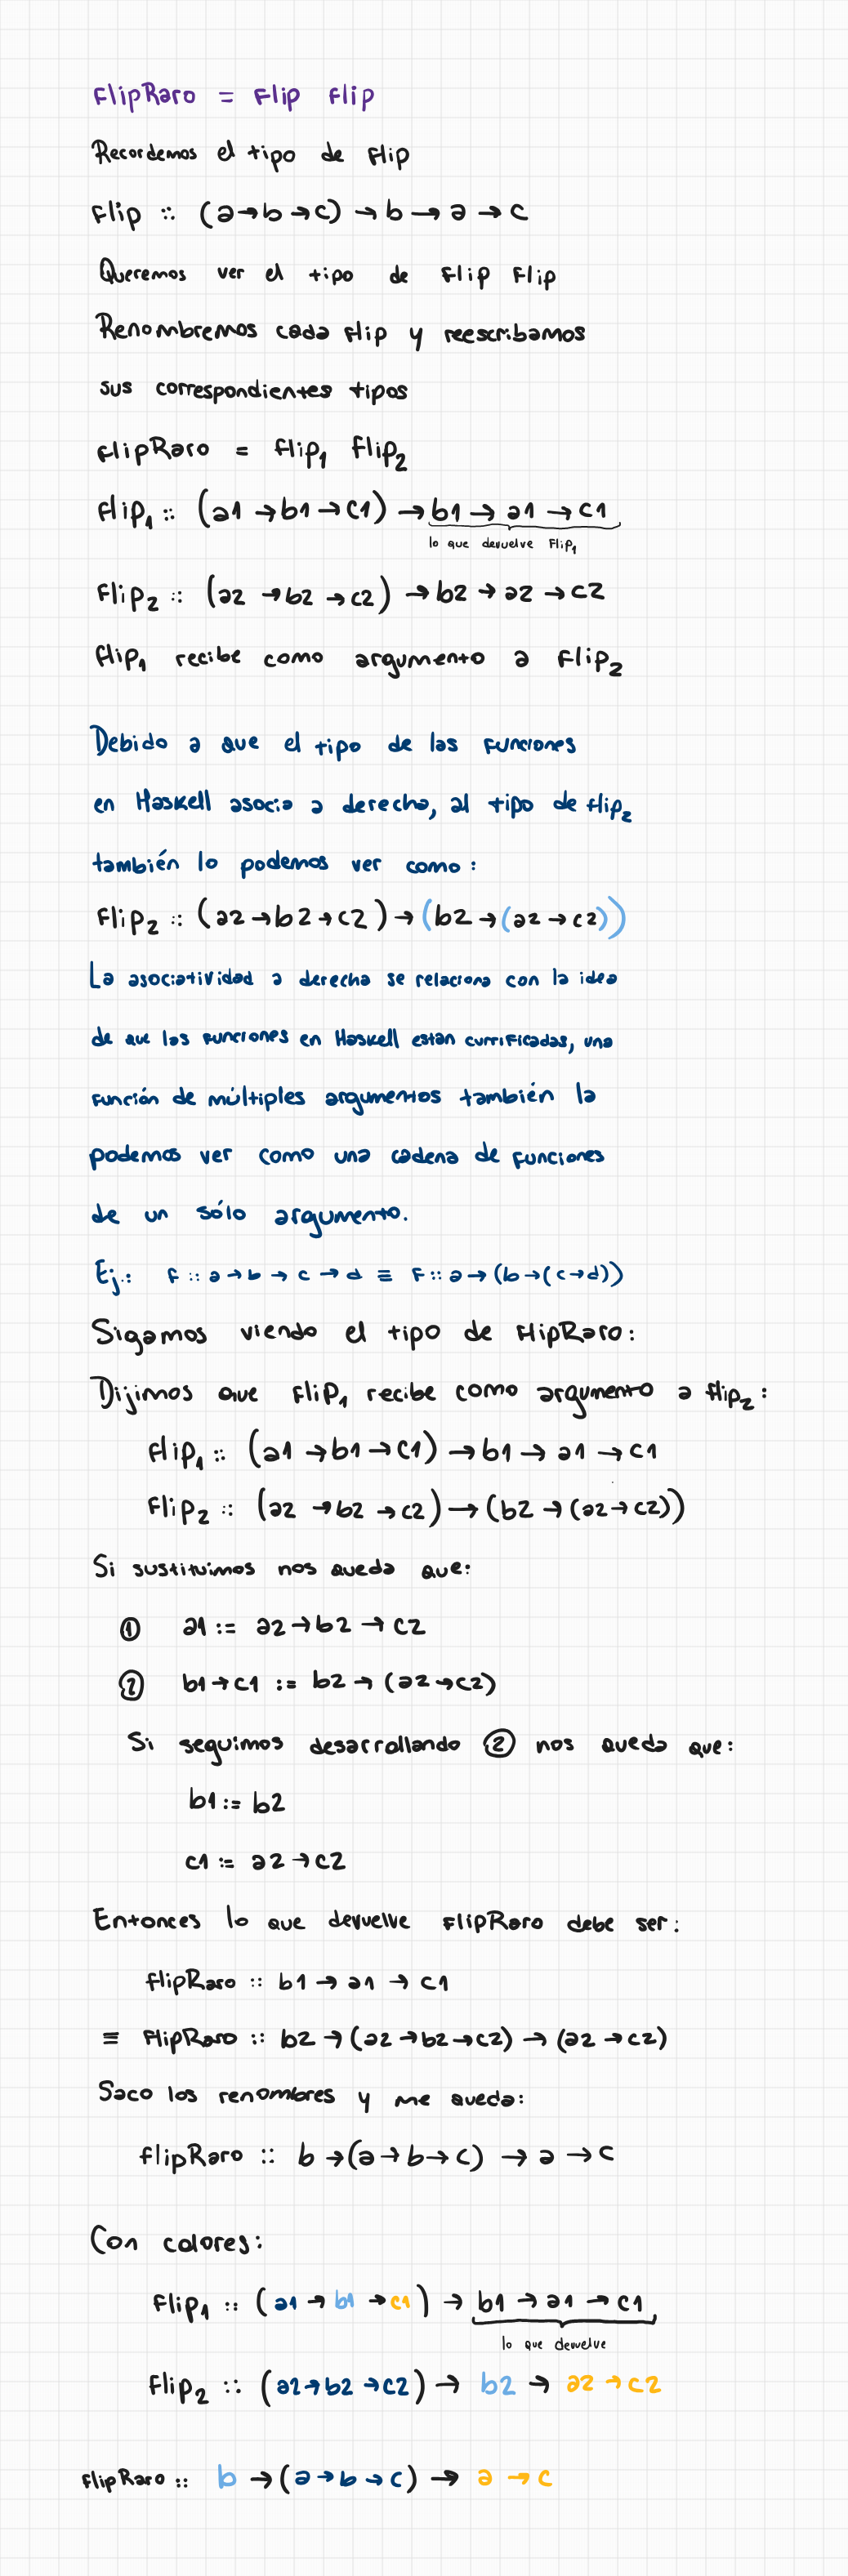 flipRaro = flip flip
Recordemos el tipo de flip
flip :: (a→b→c) → b → a → c
Queremos ver el tipo de flip flip
Renombremos cada flip y reescribamos
sus correspondientes tipos
flipRaro = flip₁ flip₂
flip₁ :: (a1 → b1 → c1) → b1 → a1 → c1
lo que devuelve flip₁
flip₂ :: (a2 → b2 → c2) → b2 → a2 → c2
flip₁ recibe como argumento a flip₂
Debido a que el tipo de las funciones
en Haskell asocia a derecha, al tipo de flip₂
también lo podemos ver como:
flip₂ :: (a2 → b2 → c2) → (b2 → (a2 → c2))
La asociatividad a derecha se relaciona con la idea
de que las funciones en Haskell estan currificadas, una
función de múltiples argumentos también la
podemos ver como una cadena de funciones
de un sólo argumento.
Ej.: f :: a → b → c → d ≡ f :: a → (b → (c → d))
Sigamos viendo el tipo de flipRaro:
Dijimos que flip₁ recibe como argumento a flip₂:
flip₁ :: (a1 → b1 → c1) → b1 → a1 → c1
flip₂ :: (a2 → b2 → c2) → (b2 → (a2 → c2))
Si sustituimos nos queda que:
① a1 := a2 → b2 → c2
② b1 → c1 := b2 → (a2 → c2)
Si seguimos desarrollando ② nos queda que:
b1 := b2
c1 := a2 → c2
Entonces lo que devuelve flipRaro debe ser:
flipRaro :: b1 → a1 → c1
≡ flipRaro :: b2 → (a2 → b2 → c2) → (a2 → c2)
Saco los renombres y me queda:
flipRaro :: b → (a → b → c) → a → c
Con colores:
flip₁ :: (a1 → b1 → c1) → b1 → a1 → c1
lo que devuelve
flip₂ :: (a2 → b2 → c2) → b2 → a2 → c2
flipRaro :: b → (a → b → c) → a → c